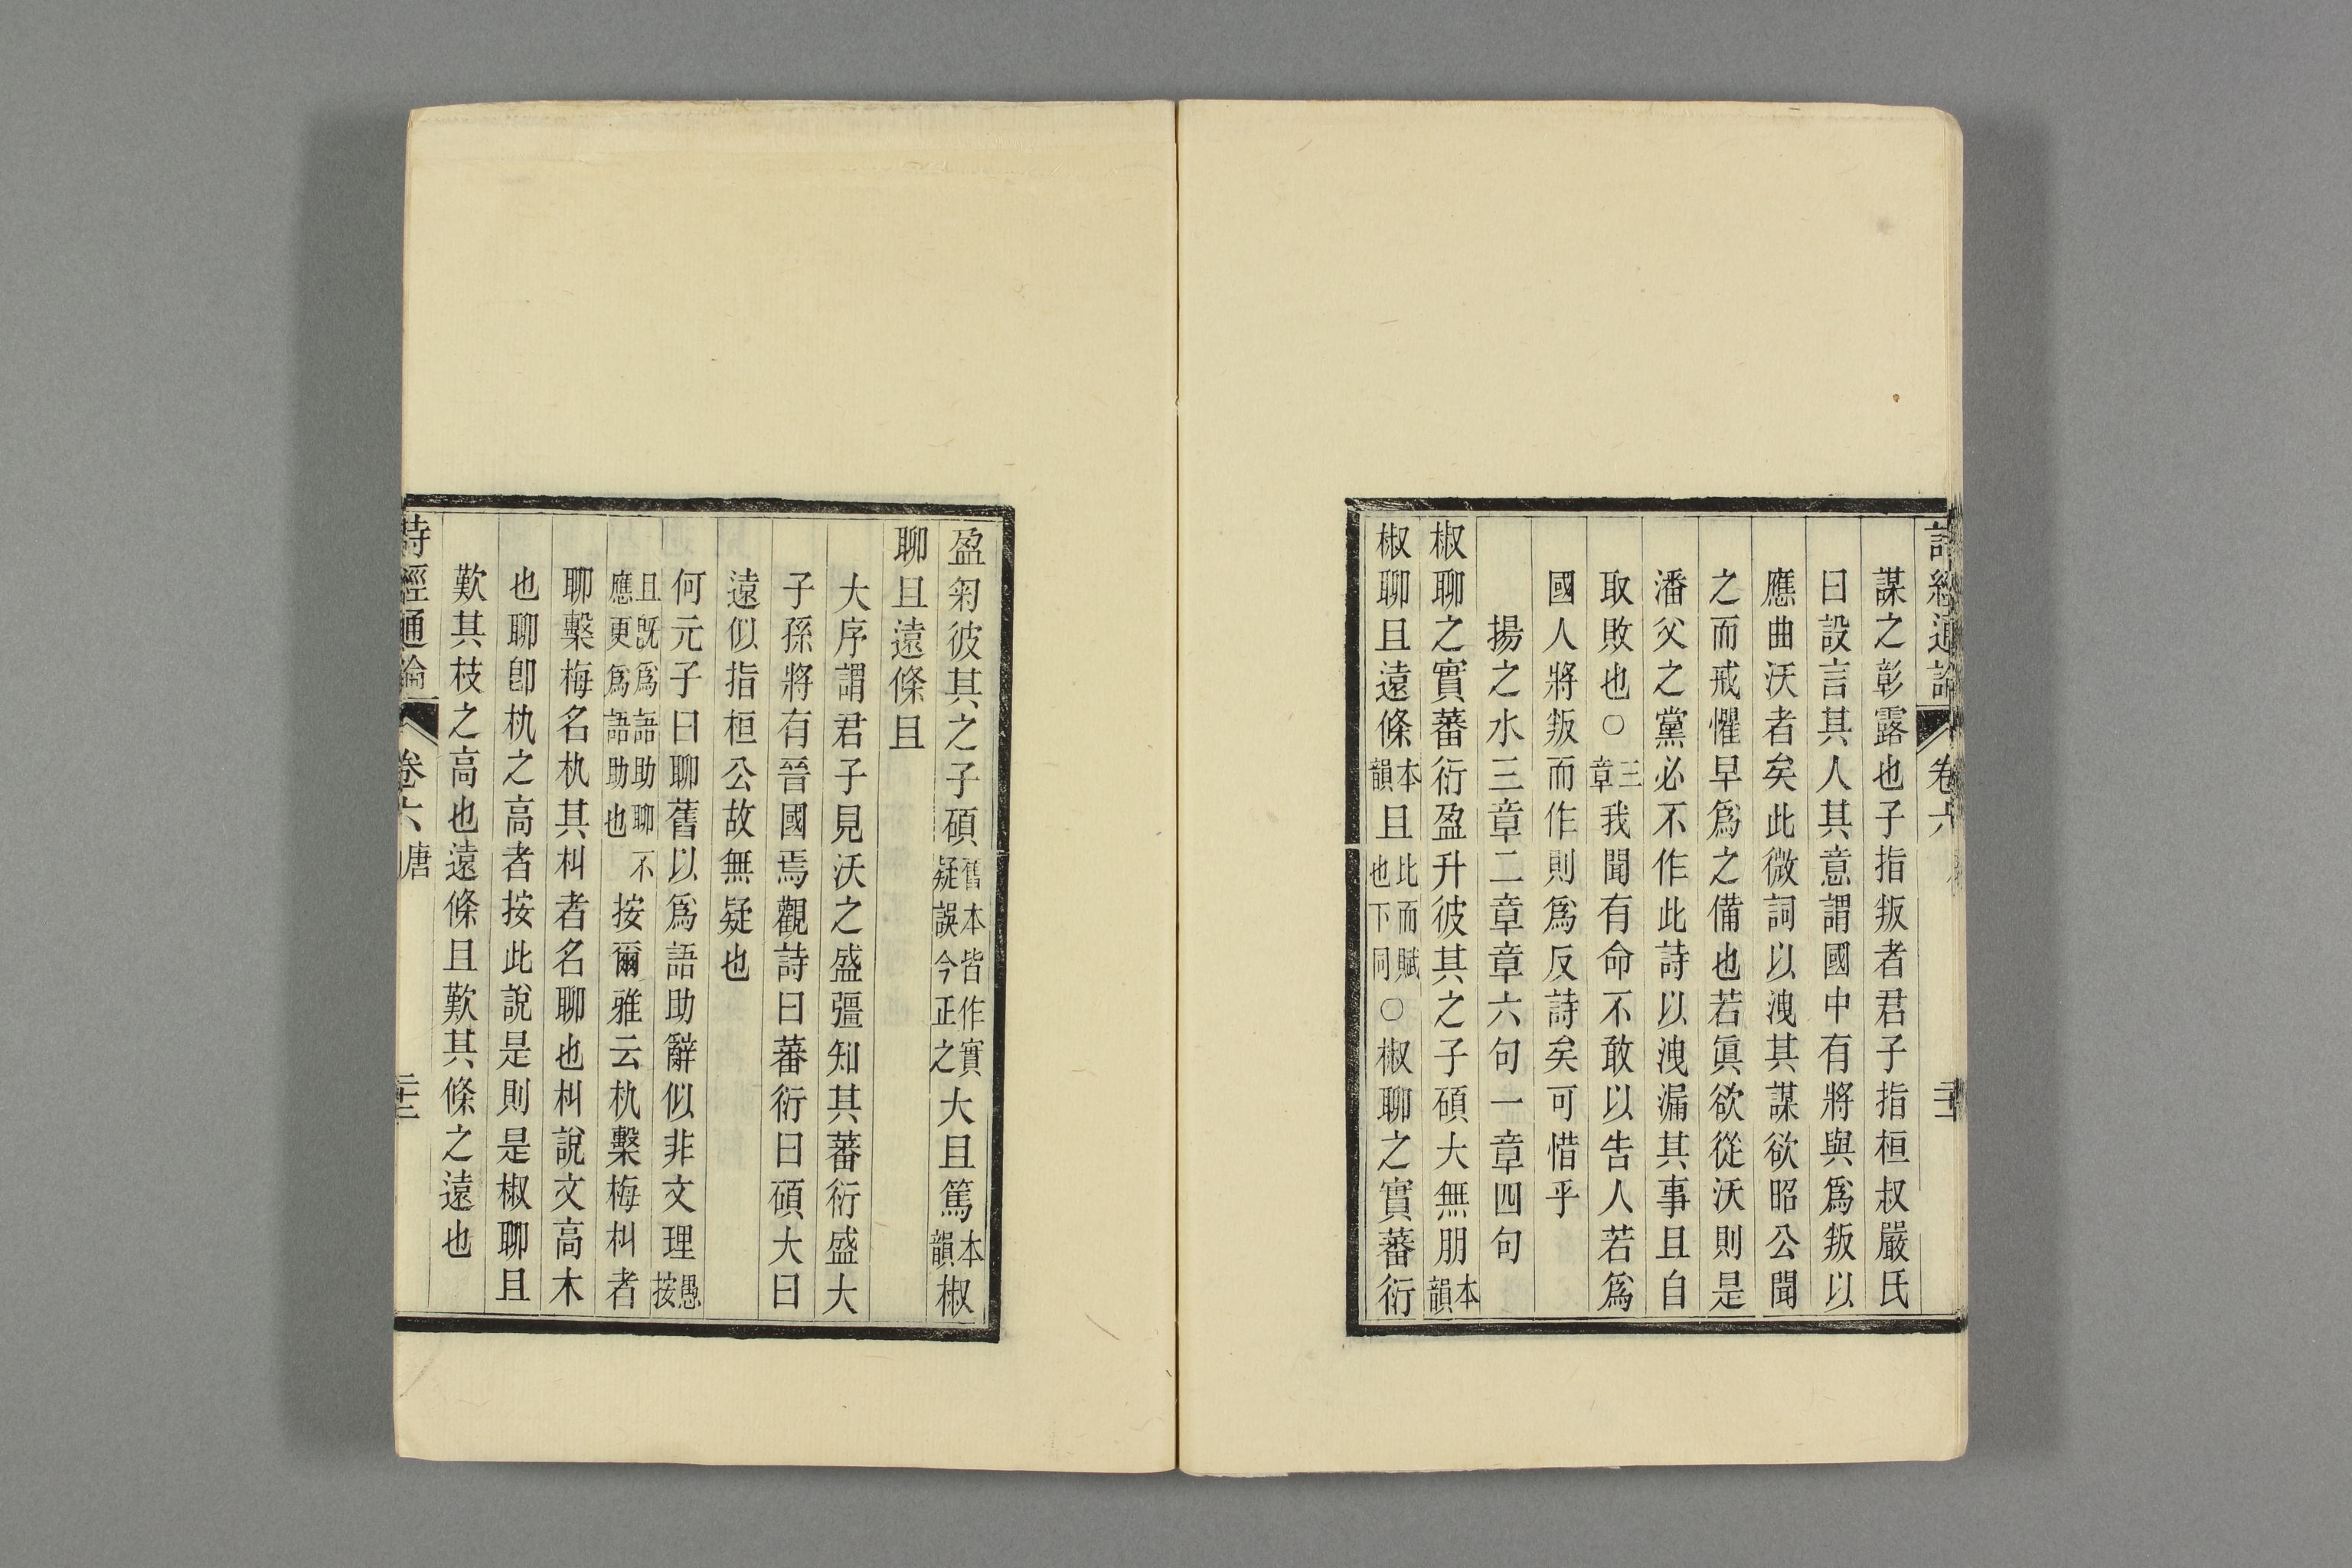 詩經通論 卷六 二十一
謀之彰露也子指叛者君子指桓叔嚴氏
曰設言其人其意謂國中有將與爲叛以
應曲沃者矣此微詞以洩其謀欲昭公聞
之而戒懼早爲之備也若眞欲從沃則是
潘父之黨必不作此詩以洩漏其事且自
取敗也○三章我聞有命不敢以告人若爲
國人將叛而作則爲反詩矣可惜乎
揚之水三章二章章六句一章四句
椒聊之實蕃衍盈升彼其之子碩大無朋本韻
椒聊且遠條本韻且比而賦也下同○椒聊之實蕃衍
盈匊彼其之子碩舊本皆作實疑誤今正之大且篤本韻椒
聊且遠條且
大序謂君子見沃之盛彊知其蕃衍盛大
子孫將有晉國焉觀詩曰蕃衍曰碩大曰
遠似指桓公故無疑也
何元子曰聊舊以爲語助辭似非文理愚按
且旣爲語助聊不應更爲語助也按爾雅云朹檕梅朻者
聊檕梅名朹其朻者名聊也朻說文高木
也聊卽朹之高者按此說是則是椒聊且
歎其枝之高也遠條且歎其條之遠也
詩經通論 卷六 唐 二十二